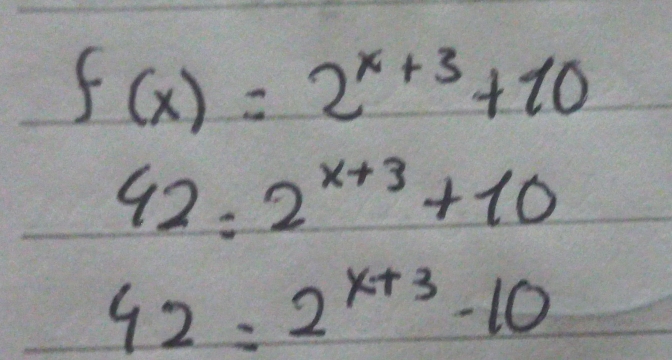 f(x) = 2^{x+3} + 10
42 = 2^{x+3} + 10
42 = 2^{x+3} - 10